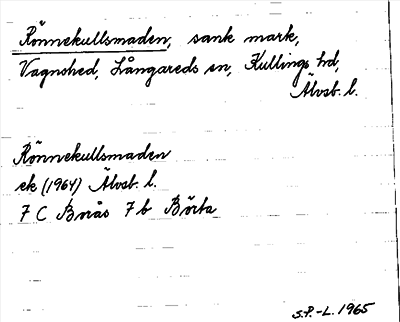 Rönnekullsmaden, sank mark,
Vagnshed, Långareds sn, Kullings hd,
Älvsb. l.
Rönnekullsmaden
ek (1964) Älvsb. l.
7 C Borås 7 b Börta
S.P.-L. 1965